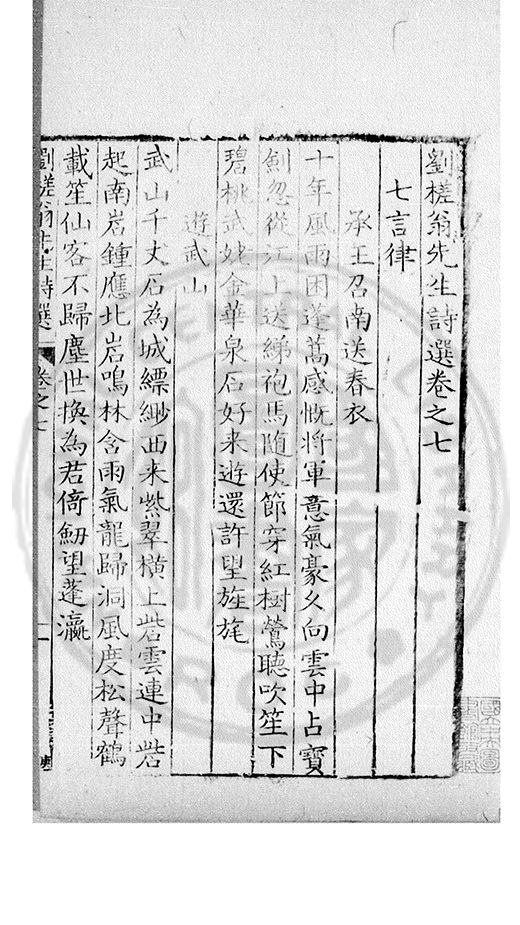 劉槎翁先生詩選卷之七
七言律
承王召南送春衣
十年風雨困蓬蒿感慨將軍意氣豪久向雲中占寶
劍忽從江上送綈袍馬隨使節穿紅樹鶯聽吹笙下
碧桃武姥金華泉石好来遊還許望旌旄
遊武山
武山千丈石為城縹緲西来紫翠橫上砦雲連中砦
起南岩鍾應北岩鳴林含雨氣龍歸洞風度松聲鶴
載笙仙客不歸塵世換為君倚劒望蓬瀛
劉槎翁先生詩選 卷之七 一